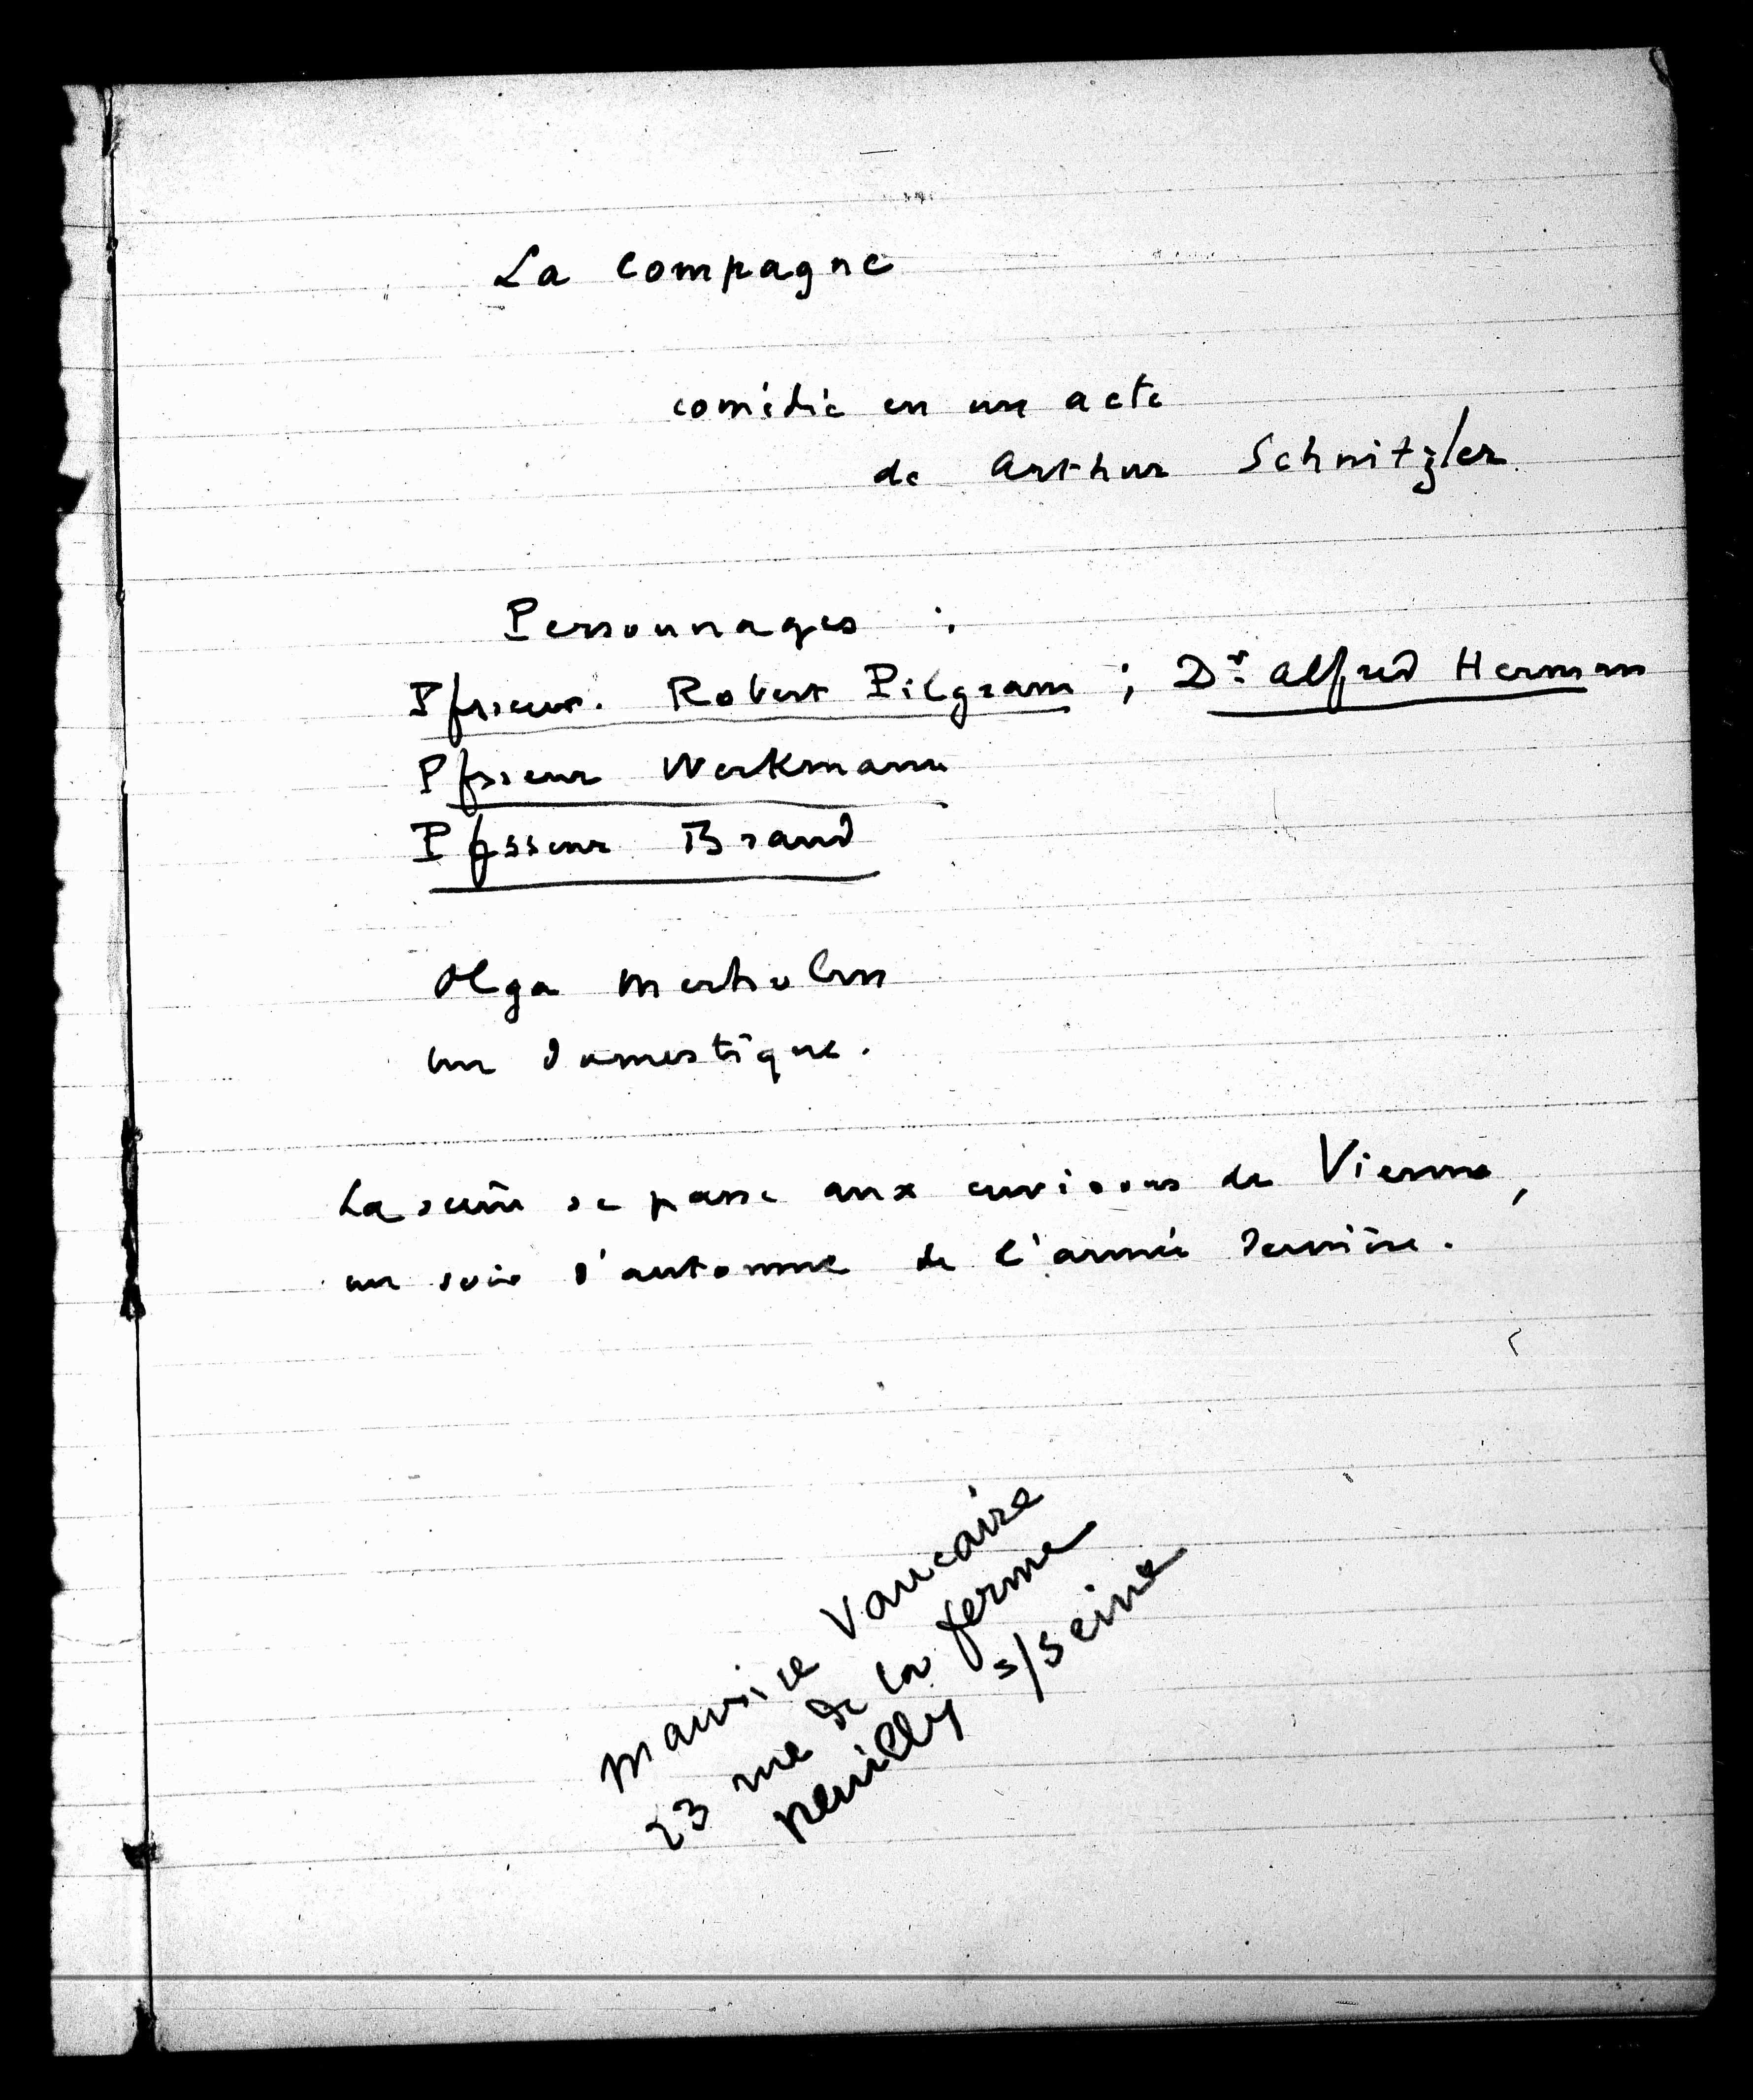 La Compagne
comédie en un acte
de Arthur Schnitzler
Personnages :
Pfsseur. Robert Pilgram ; Dr Alfred Hermann
Pfsseur Werkmann
Pfsseur Brand
Olga Merholm
un domestique.
La scène se passe aux environs de Vienne,
un soir d'automne de l'année dernière.
Maurice Vaucaire
23 rue de la ferme
Neuilly s/Seine